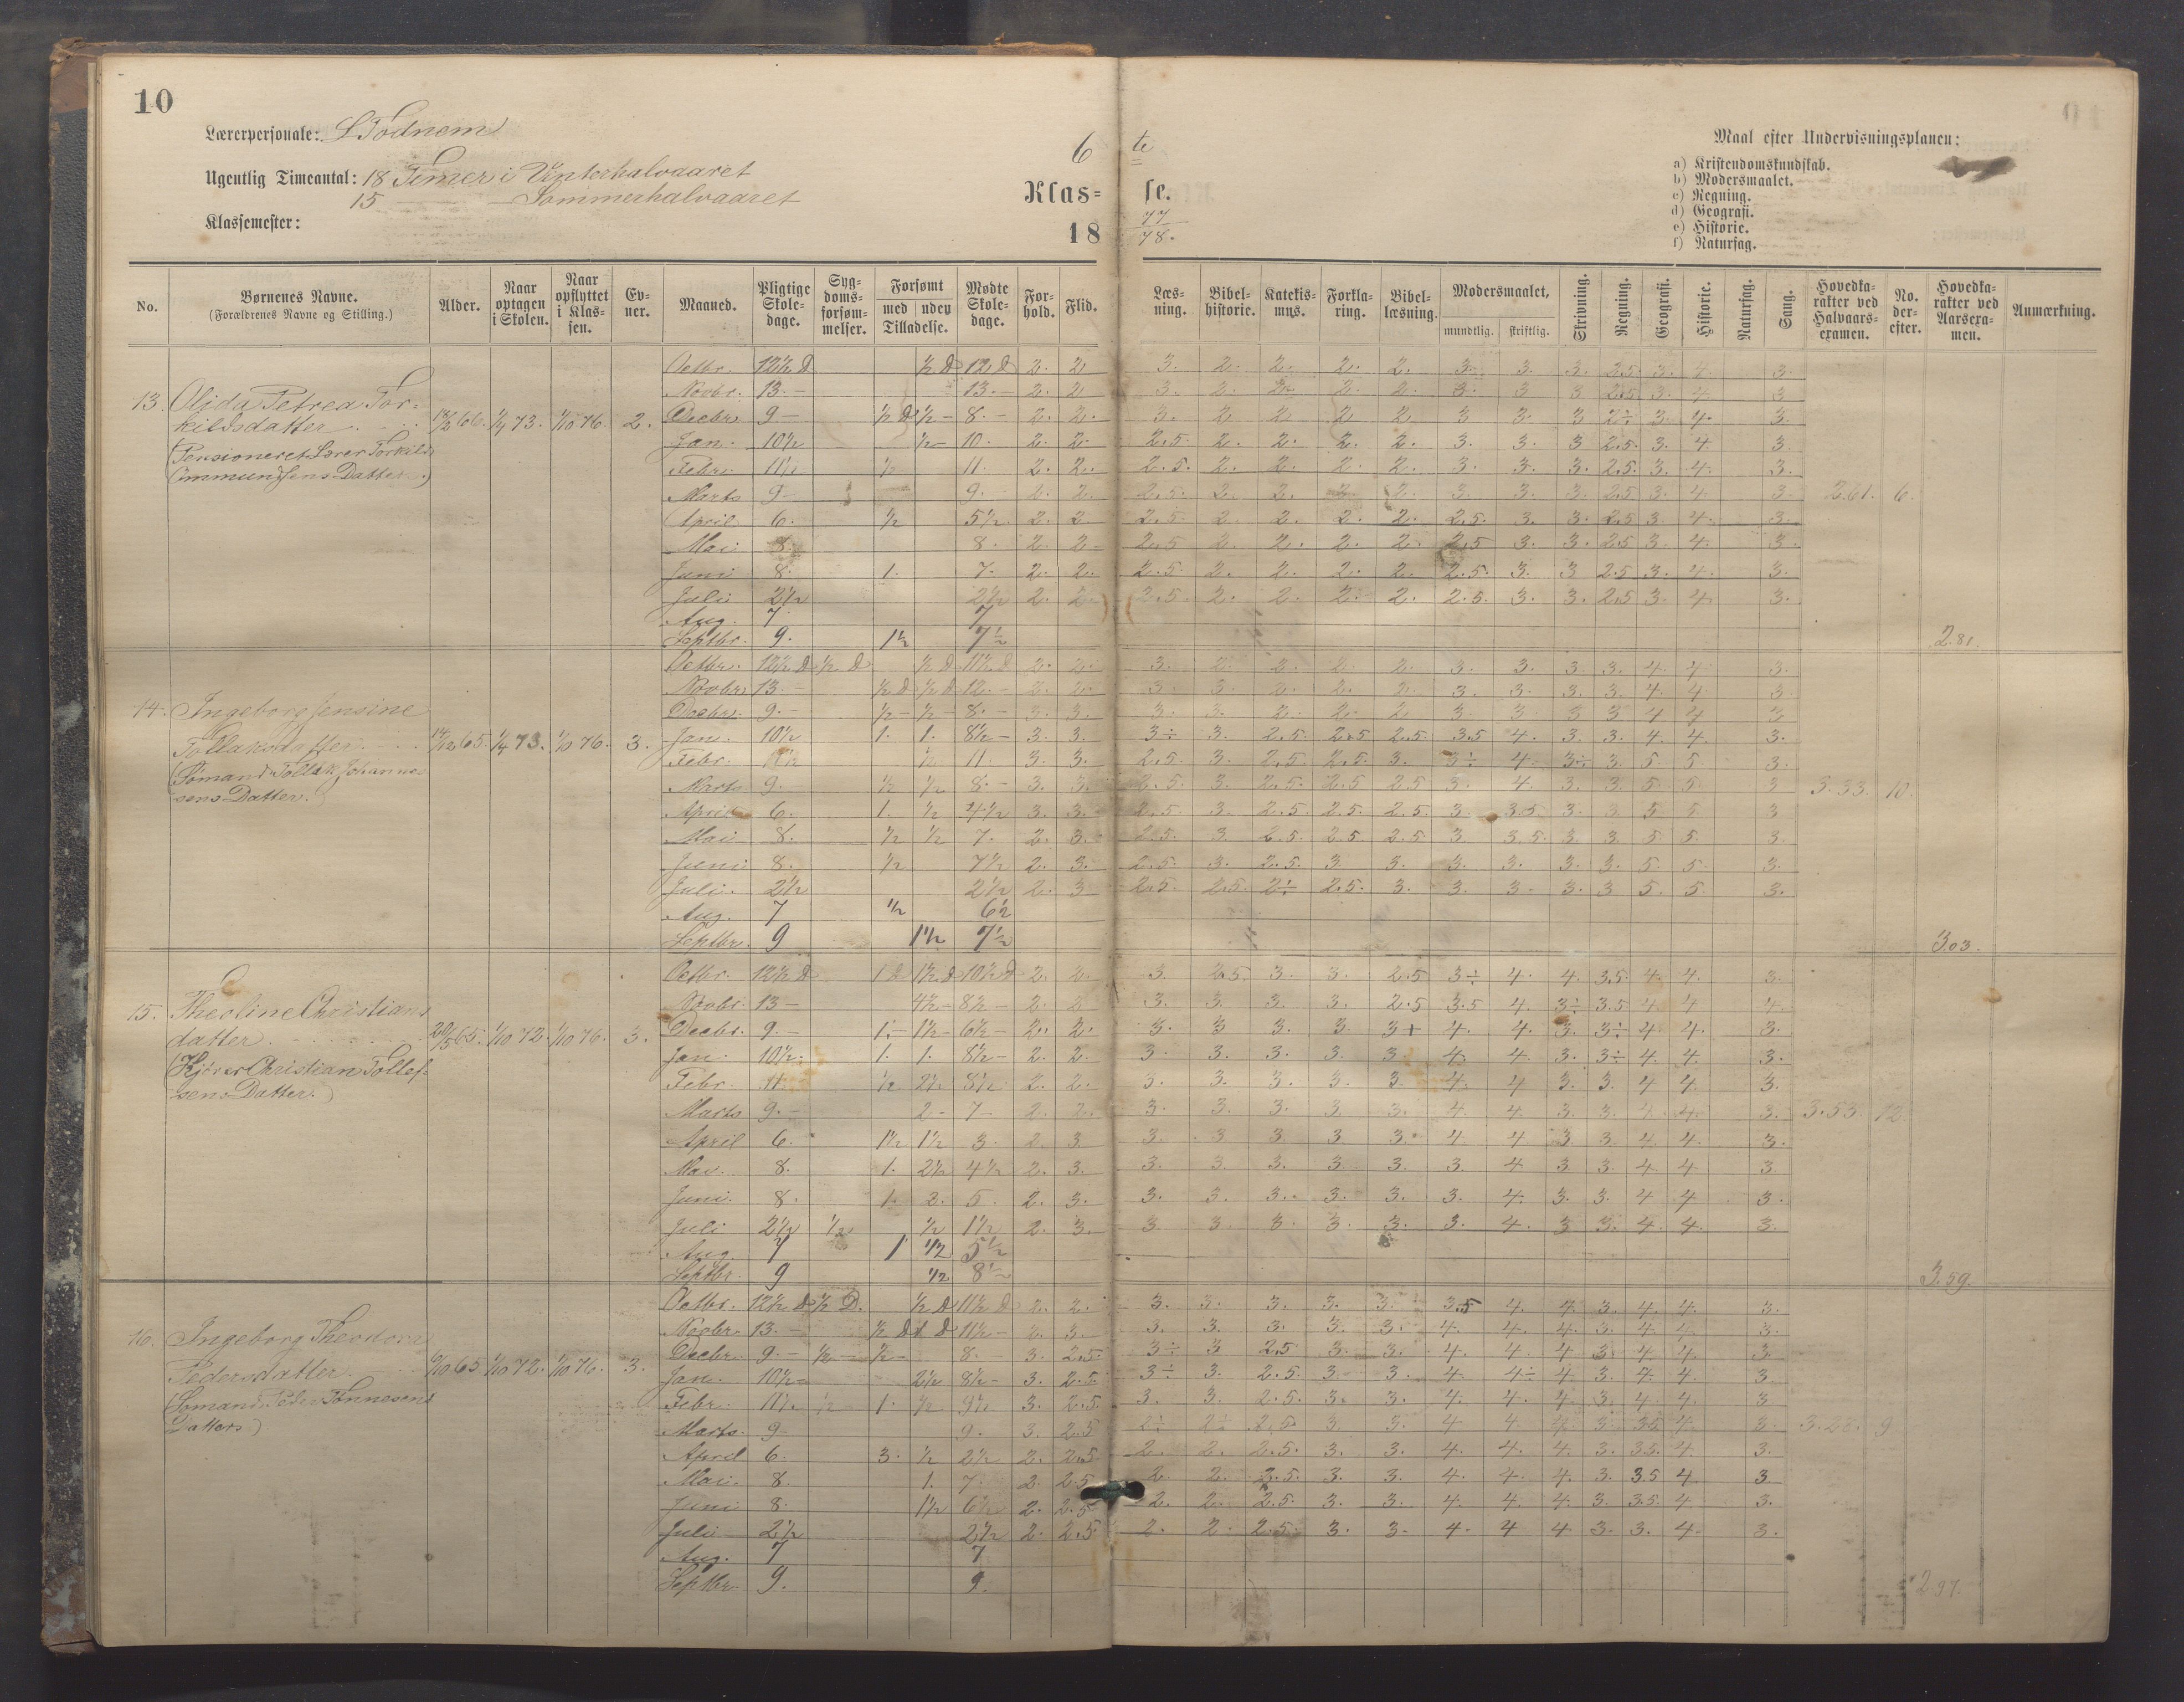 10
Lærerpersonale: S Todnem
Ugentlig Timeantal: 18 Timer i Vinterhalvaaret
15 — — Sommerhalvaaret
Klassemester:
6 te
Klas= se.
18 77/78.
Maal efter Undervisningsplanen:
a) Kristendomskundskab.
b) Modersmaalet.
c) Regning.
d) Geografi.
e) Historie.
f) Naturfag.
No. Børnenes Navne. (Forældrenes Navne og Stilling.) Alder. Naar optagen i Skolen. Naar opflyttet i Klassen. Evner. Maaned. Pligtige Skoledage. Sygdomsforsømmelser. Forsømt med uden Tilladelse. Mødte Skoledage. Forhold. Flid. Læsning. Bibelhistorie. Katekismus. Forklaring. Bibellæsning. Modersmaalet, mundtlig. skriftlig. Skrivning. Regning. Geografi. Historie. Naturfag. Sang. Hovedkarakter ved Halvaarsexamen. No. derefter. Hovedkarakter ved Aarsexamen. Anmærkning.
13. Olida Petrea Torkildsdatter
(Pensioneret Lærer Torkild Ommundsens Datter.)
1/4 73. 1/10 76. 2.
Octbr. 12½ D ½ D 12 D 2. 2 3. 2. 2. 2. 2. 3. 3. 3. 2.5 3. 4. 3.
Novbr. 13. — 13. — 2. 2 3. 2. 2. 2. 2. 3. 3 3 2.5 3. 4. 3
Decbr. 9 — ½ D ½ — 8. — 2. 2. 3. 2 2 2 2 3 3. 3 2÷ 3. 4. 3
Jan. 10½ ½ 10. 2. 2. 2.5. 2. 2. 2. 2 3. 3. 3 2.5. 3. 4 3.
Febr. 11½ ½ 11. 2. 2. 2.5. 2. 2. 2. 2. 3. 3. 3. 2.5. 3. 4. 3.
Marts 9 — 9. — 2. 2.5. 2. 2. 2. 2. 3. 3. 3. 2.5 3. 4. 3. 2.61. 6.
April 6. ½ 5½ 2. 2 2.5 2 2. 2. 2. 2.5. 3. 3. 2.5 3. 4. 3.
Mai 8. 8. 2. 2. 2.5 2 2. 2. 2. 2.5 3. 3. 2.5 3. 4. 3.
Juni 8. 1. 7. 2. 2. 2.5. 2. 2. 2. 2. 2.5. 3. 3 2.5 3. 4. 3.
Juli 2½ 2½ 2. 2. 2.5 2. 2. 2. 2. 2.5. 3. 3. 2.5 3. 4. 3.
Aug. 7 7
Septbr. 9. 1½ 7½ 2.81.
14. Ingeborg Jensine
Tollaksdatter
(Sømand Tollak Johannessens Datter.)
12/12 65. 1/4 73. 1/10 76. 3.
Octbr. 12½ D ½ D ½ D 11½ D 3. 2. 3. 2. 2. 2. 2. 3. 3. 3. 3. 4. 4. 3.
Novbr. 13. — ½ D ½ D 12. — 2. 2. 3. 3. 2. 2. 2. 3. 3. 3. 3. 4. 4. 3
Decbr. 9. — ½ — ½ — 8. — 3. 3. 3. 3. 2. 2. 2 3. 3 3 3 4 4 3
Jan. 10½ 1. 1. 8½ — 3. 3. 3÷ 3. 2.5. 2.5 2.5 3.5 4. 3. 3. 4. 4. 3.
Febr. 11½ ½ 11. 3. 3. 2.5. 3. 2.5 2.5. 3. 3÷ 4. 3÷ 3. 5. 5 3.
Marts 9. — ½ ½ 8. — 3. 3. 2.5 3. 2.5. 2.5 2.5 3. 4. 3. 3. 5. 5. 3 3.33. 10.
April 6. 1. ½ 4½ 3. 3. 2.5 3. 2.5 2.5. 2.5 3 3.5 3. 3 5 5 3
Mai 8. ½ ½ 7. 2. 3. 2.5. 3. 2.5. 2.5 2.5 3 3.5. 3. 3 5. 5. 3.
Juni 8. ½ 7½ 2. 3. 2.5. 3. 2.5. 3. 3. 3. 3. 3. 3. 5. 5. 3.
Juli. 2½ 2½ 2. 3 2.5. 2.5. 2÷ 2.5. 3. 3. 3. 3. 3 5 5 3.
Aug. 7 ½ 6½
Septbr. 9 1½ 7½ 3.03.
15. Theoline Christiansdatter
(Kjører Christian Tollefsens Datter.)
20/5 65. 1/10 72. 1/10 76. 3.
Octbr. 12½ D 1 D 1½ D 10½ D 2. 2. 3. 2.5 3. 3. 2.5 3÷ 4. 4. 3.5. 4. 4. 3.
Novbr. 13 — 4½ — 8½ — 2. 2 3. 3. 3. 3. 2.5 3.5 4. 3÷ 3.5 4. 4 4.
Decbr. 9. — 1. — 1½ — 6½ — 2. 2. 3. 3 3. 3. 3+ 4. 4. 3. 3÷ 4. 4. 3.
Jan. 10½. 1. 1. 8½ — 2. 2. 3. 3. 3. 3. 3. 4. 4. 3. 3÷ 4. 4. 3.
Febr. 11. ½ 2½ 8½ 2. 2. 3. 3. 3. 3. 3. 4. 4 3. 3. 4 4. 3.
Marts 9. — 2 — 7 — 2. 2. 3. 3. 3. 3. 3. 4. 4. 3. 3. 4. 4. 3. 3.53. 12.
April 6. 1½ 1½ 3. 2. 3. 3. 3. 3. 3 3. 4. 4 3 3. 4. 4. 3.
Mai. 8. 1. 2½ 4½ 2. 3. 3. 3. 3. 3. 3. 3. 4 3. 3. 4 4 3.
Juni. 8. 1. 2. 5. 2. 3. 3. 3. 3. 3. 3. 3. 4. 3. 3. 4 4 3.
Juli 2½ ½ ½ 1½ 2. 3. 3. 3. 3. 3. 3. 3. 4. 3 3. 4 4. 3.
Aug. 7 1 ½ 5½
Septbr. 9 ½ 8½ 3.59.
16. Ingeborg Theodora
Pedersdatter
(Sømand Peder Tønnesens Datter)
6/10 65. 1/10 72. 1/10 76. 3.
Octbr. 12½ D ½ D. ½ D 11½ D 2. 2. 3. 3. 3. 3. 3. 3.5 4. 4. 3. 4. 4. 3.
Novbr. 13. — ½ D 1 D 11½ — 2. 3. 3. 3. 3. 3. 3. 4. 4. 4. 3. 4. 4. 3.
Decbr. 9. — ½ — ½ — 8. — 3. 2.5. 3÷ 3 2.5 3. 3. 4. 4. 4 3. 4. 4. 3
Jan. 10½ — 2½ 8½ — 3. 2.5. 3÷ 3. 2.5 3. 3. 4. 4÷ 4 3. 4. 4. 3
Febr. 11½ ½ 1. ½ 9½ 3. 2.5. 3. 3. 2.5. 3. 3. 4. 4. 4. 3. 4. 4. 3
Marts. 9 — 9. 3. 2.5 2÷ 2÷ 2.5 3 3. 4 4. 4. 3. 3.5 4 3. 3.28. 9
April 6. 3. ½ 2½ 2. 2.5. 2. 2. 2.5. 3. 3. 4. 4. 4. 3. 3.5. 4. 3.
Mai. 8. 1. 7. 2. 2.5. 2. 2. 2.5. 3. 3. 4. 4. 4. 3. 3.5 4. 3
Juni 8. 1½ 6½ 2. 2.5. 2. 2. 2.5. 3. 3. 4. 4. 4. 3. 3.5. 4 3.
Juli 2½ 2½ 2. 2.5 2. 2. 2.5. 3. 3. 4. 4 4 3. 3. 4. 3.
Aug. 7 7
Septbr. 9. 9. 2.97.